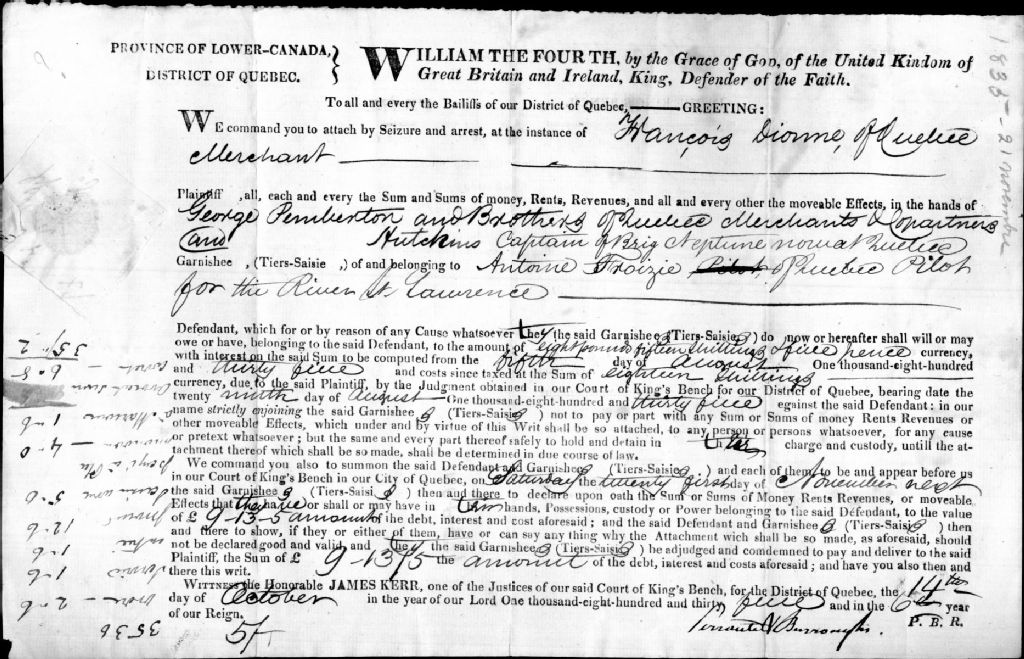 PROVINCE OF LOWER-CANADA,
DISTRICT OF QUEBEC.
WILLIAM THE FOURTH, by the Grace of GOD, of the United Kindom of
Great Britain and Ireland, King, Defender of the Faith.
To all and every the Bailiffs of our District of Quebec, GREETING:
WE command you to attach by Seizure and arrest, at the instance of François Dionne, of Quebec
Merchant
Plaintiff ,all, each and every the Sum and Sums of money, Rents, Revenues, and all and every other the moveable Effects, in the hands of
George Pemberton and Brothers of Quebec Merchants & Copartners
and Hutchins Captain of Brig Neptune now at Quebec
Garnishee , (Tiers-Saisie ,) of and belonging to Antoine Froizie Pilot of Quebec Pilot
for the River St Lawrence
Defendant, which for or by reason of any Cause whatsoever they the said Garnishees (Tiers-Saisis) do now or hereafter shall will or may
owe or have, belonging to the said Defendant, to the amount of eight pounds fifteen shillings & five pence currency,
with interest on the said Sum to be computed from the day of august One thousand-eight-hundred
and thirty five and costs since taxed at the Sum of eighteen shillings
currency, due to the said Plaintiff, by the Judgment obtained in our Court of King's Bench for our District of Quebec, bearing date the
twenty ninth day of august One thousand-eight-hundred and thirty five egainst the said Defendant: in our
name strictly enjoining the said Garnishees (Tiers-Saisis) not to pay or part with any Sum or Snms of money Rents Revenues or
other moveable Effects, which under and by virtue of this Writ shall be so attached, to any person or persons whatsoever, for any cause
or pretext whatsoever; but the same and every part thereof safely to hold and detain in their charge and custody, untill the at-
tachment thereof which shall be so made, shall be determined in due course of law.
We command you also to summon the said Defendant and Garnishees (Tiers-Saisis ) and each of them to be and appear before us
in our Court of King's Bench in our City of Quebec, on Saturday the twenty first day of November next
the said Garnishees (Tiers-Saisis ) then and there to declare upon oath the Sum or Sums of Money Rents Revenues, or moveable
Effects that they have or shall or may have in their hands, Possessions, custody or Power belonging to the said Défendant, to the value
of £ 9-13-5 amount of the debt, interest and cost aforesaid; and the said Defendant and Garnishees (Tiers-Saisis) then
and there to show, if they or either of them, have or can say any thing why the Attachment wich shall be so made, as aforesaid, should
not be declared good and valid and they the said Garnishees (Tiers-Saisis) be adjudged and comdemned to pay and deliver to the said
Plaintiff, the Sum of £ 9-13/5 the amount of the debt, interest and costs aforesaid; and have you also then and
there this writ.
WITNESS the Honorable JAMES KERR, one of the Justices of our said Court of King's Bench, for the District of Quebec, the 14th
day of October in the year of our Lord One thousand-eight-hundred and thirty five and in the 6th year
of our Reign. 5/ Perrault & Burroughs. P. B. R.
1835 - 21 novembre